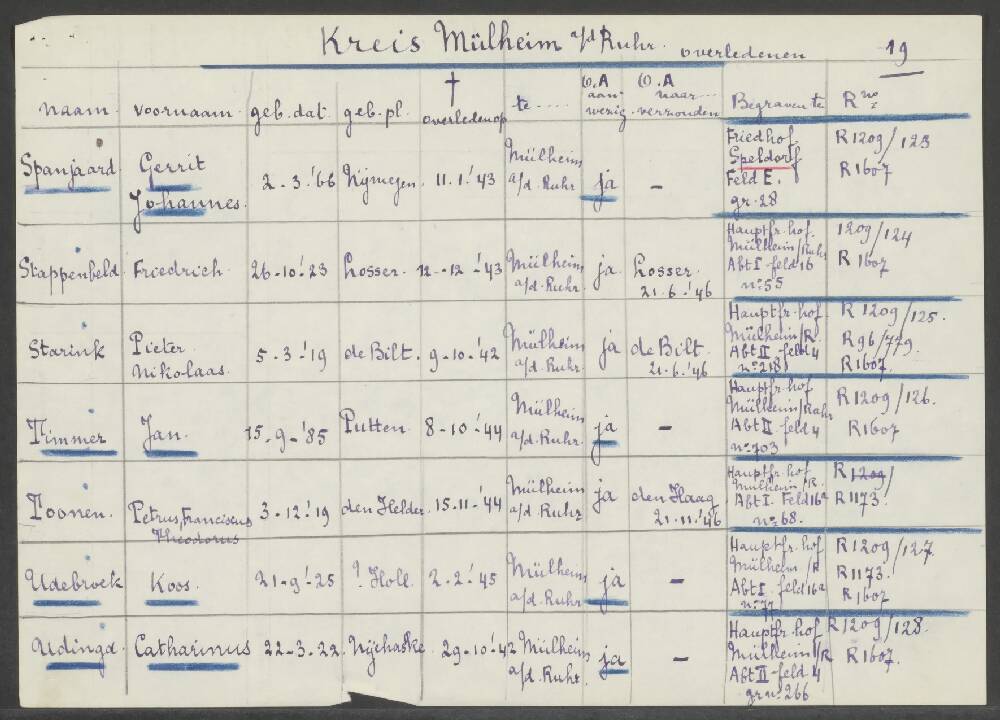 Kreis Mülheim a/d Ruhr. overledenen 19
naam. voornaam. geb. dat. geb. pl. † overleden op te ..... O.A aanwezig. (O.A naar... verzonden Begraven te R no:
Spanjaard Gerrit Johannes. 2-3-'66 Nijmegen. 11-1-'43 Mülheim a/d. Ruhr ja - Friedhof Speldorf Feld E. gr. 28 R1209/123 R1607
Stappenbeld. Friedrich. 26-10-'23 Losser. 12-12-'43 Mülheim a/d. Ruhr. ja. Losser. 21-6-'46 Hauptfr. hof. Mülheim/Ruhr Abt I feld 16 no 55 1209/124 R 1607
Starink Pieter Nikolaas. 5-3-'19 de Bilt. 9-10-'42 Mülheim a/d. Ruhr. ja de Bilt. 21-6-'46 Hauptfr. hof. Mülheim/R. Abt II feld 4 no 218 R 1209/125. R96/779. R1607.
Timmer Jan. 15-9-'85 Putten. 8-10-'44 Mülheim a/d. Ruhr. ja - Hauptfr. hof Mülheim/Ruhr Abt II feld 4 no 703 R1209/126. R1607
Toonen. Petrus, Franciscus Theodorus 3-12-'19 den Helder. 15-11-'44 Mülheim a/d. Ruhr ja den Haag 21-11-'46 Hauptfr. hof Mülheim/R. Abt I. Feld 16a no 68. R 1209/ R1173.
Udebroek Koos. 21-9-'25 ? Holl. 2-2-'45 Mülheim a/d. Ruhr ja - Hauptfr. hof Mülheim/R Abt I feld 16a no 77 R1209/127. R1173. R1607
Udingd. Catharinus 22-3-22. Nijehaske. 29-10-'42 Mülheim a/d. Ruhr. ja - Hauptfr. hof Mülheim/R Abt II feld 4 gr no 266 R1209/128. R1607.